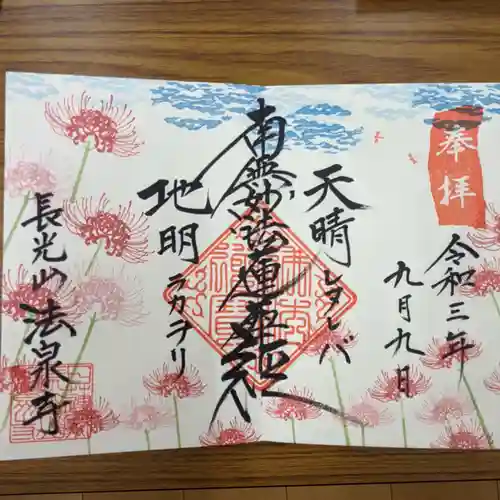 奉拝
令和三年
九月九日
天晴レヌレバ
南無妙法蓮華経
地明ラカナリ
長光山法泉寺